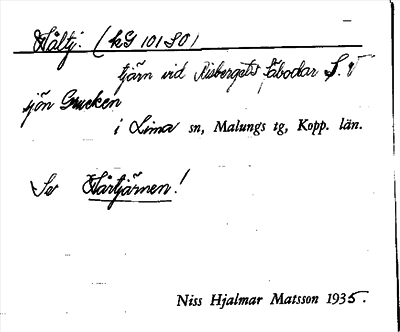 Håltj. (kG 10180)
tjärn vid Risbergets fäbodar S. V
sjön Grucken
i Lima sn, Malungs tg, Kopp. län.
Se Hårtjärnen!
Niss Hjalmar Matsson 1935.